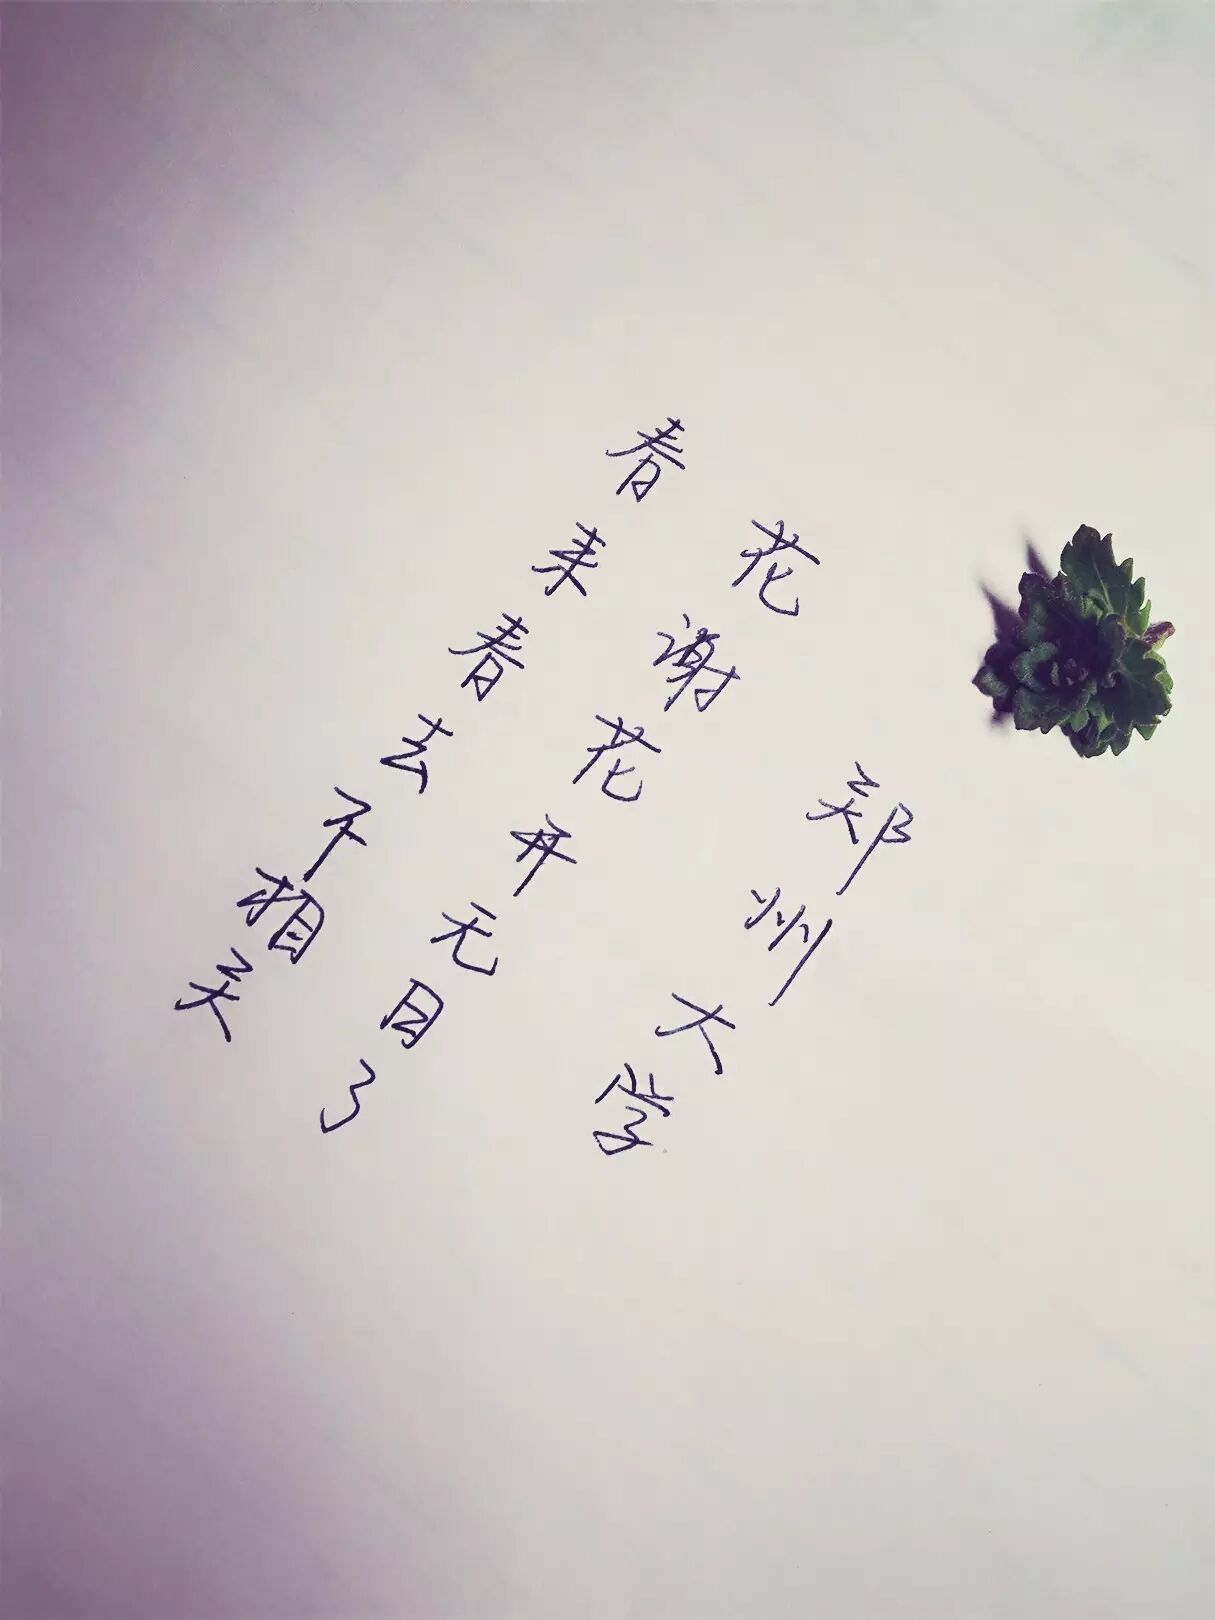 春来春去不相关
花谢花开无日了
郑州大学